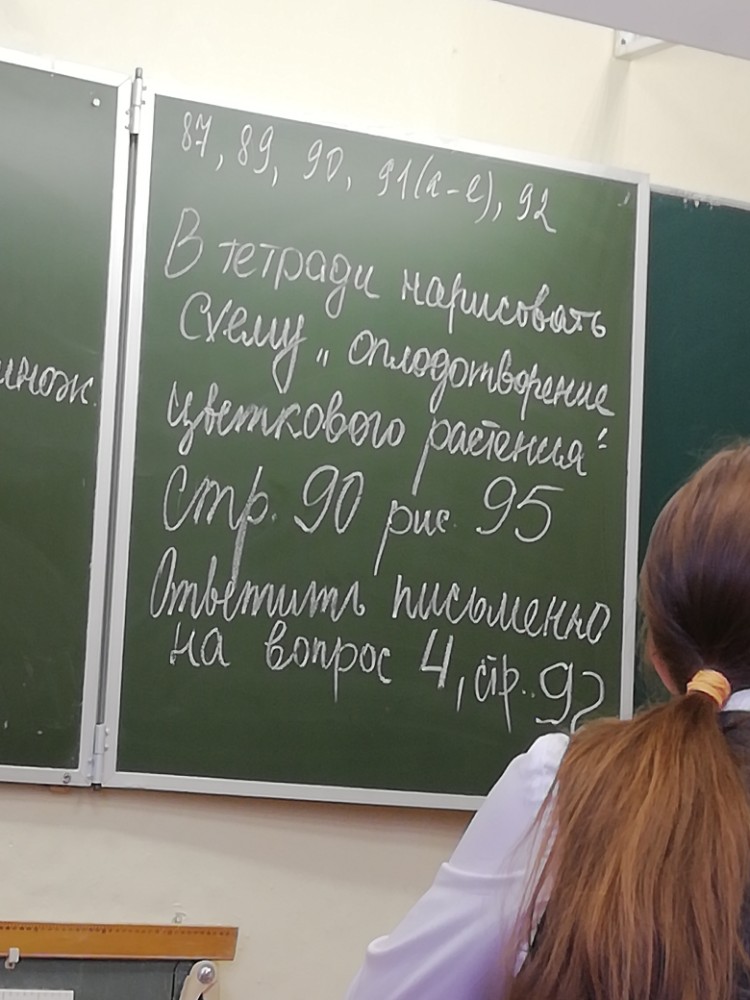 инож.
87, 89, 90, 91(а-е), 92
В тетради нарисовать
схему „ оплодотворение
цветкового растения"
Стр. 90 рис. 95
Ответить письменно
на вопрос 4, стр. 92